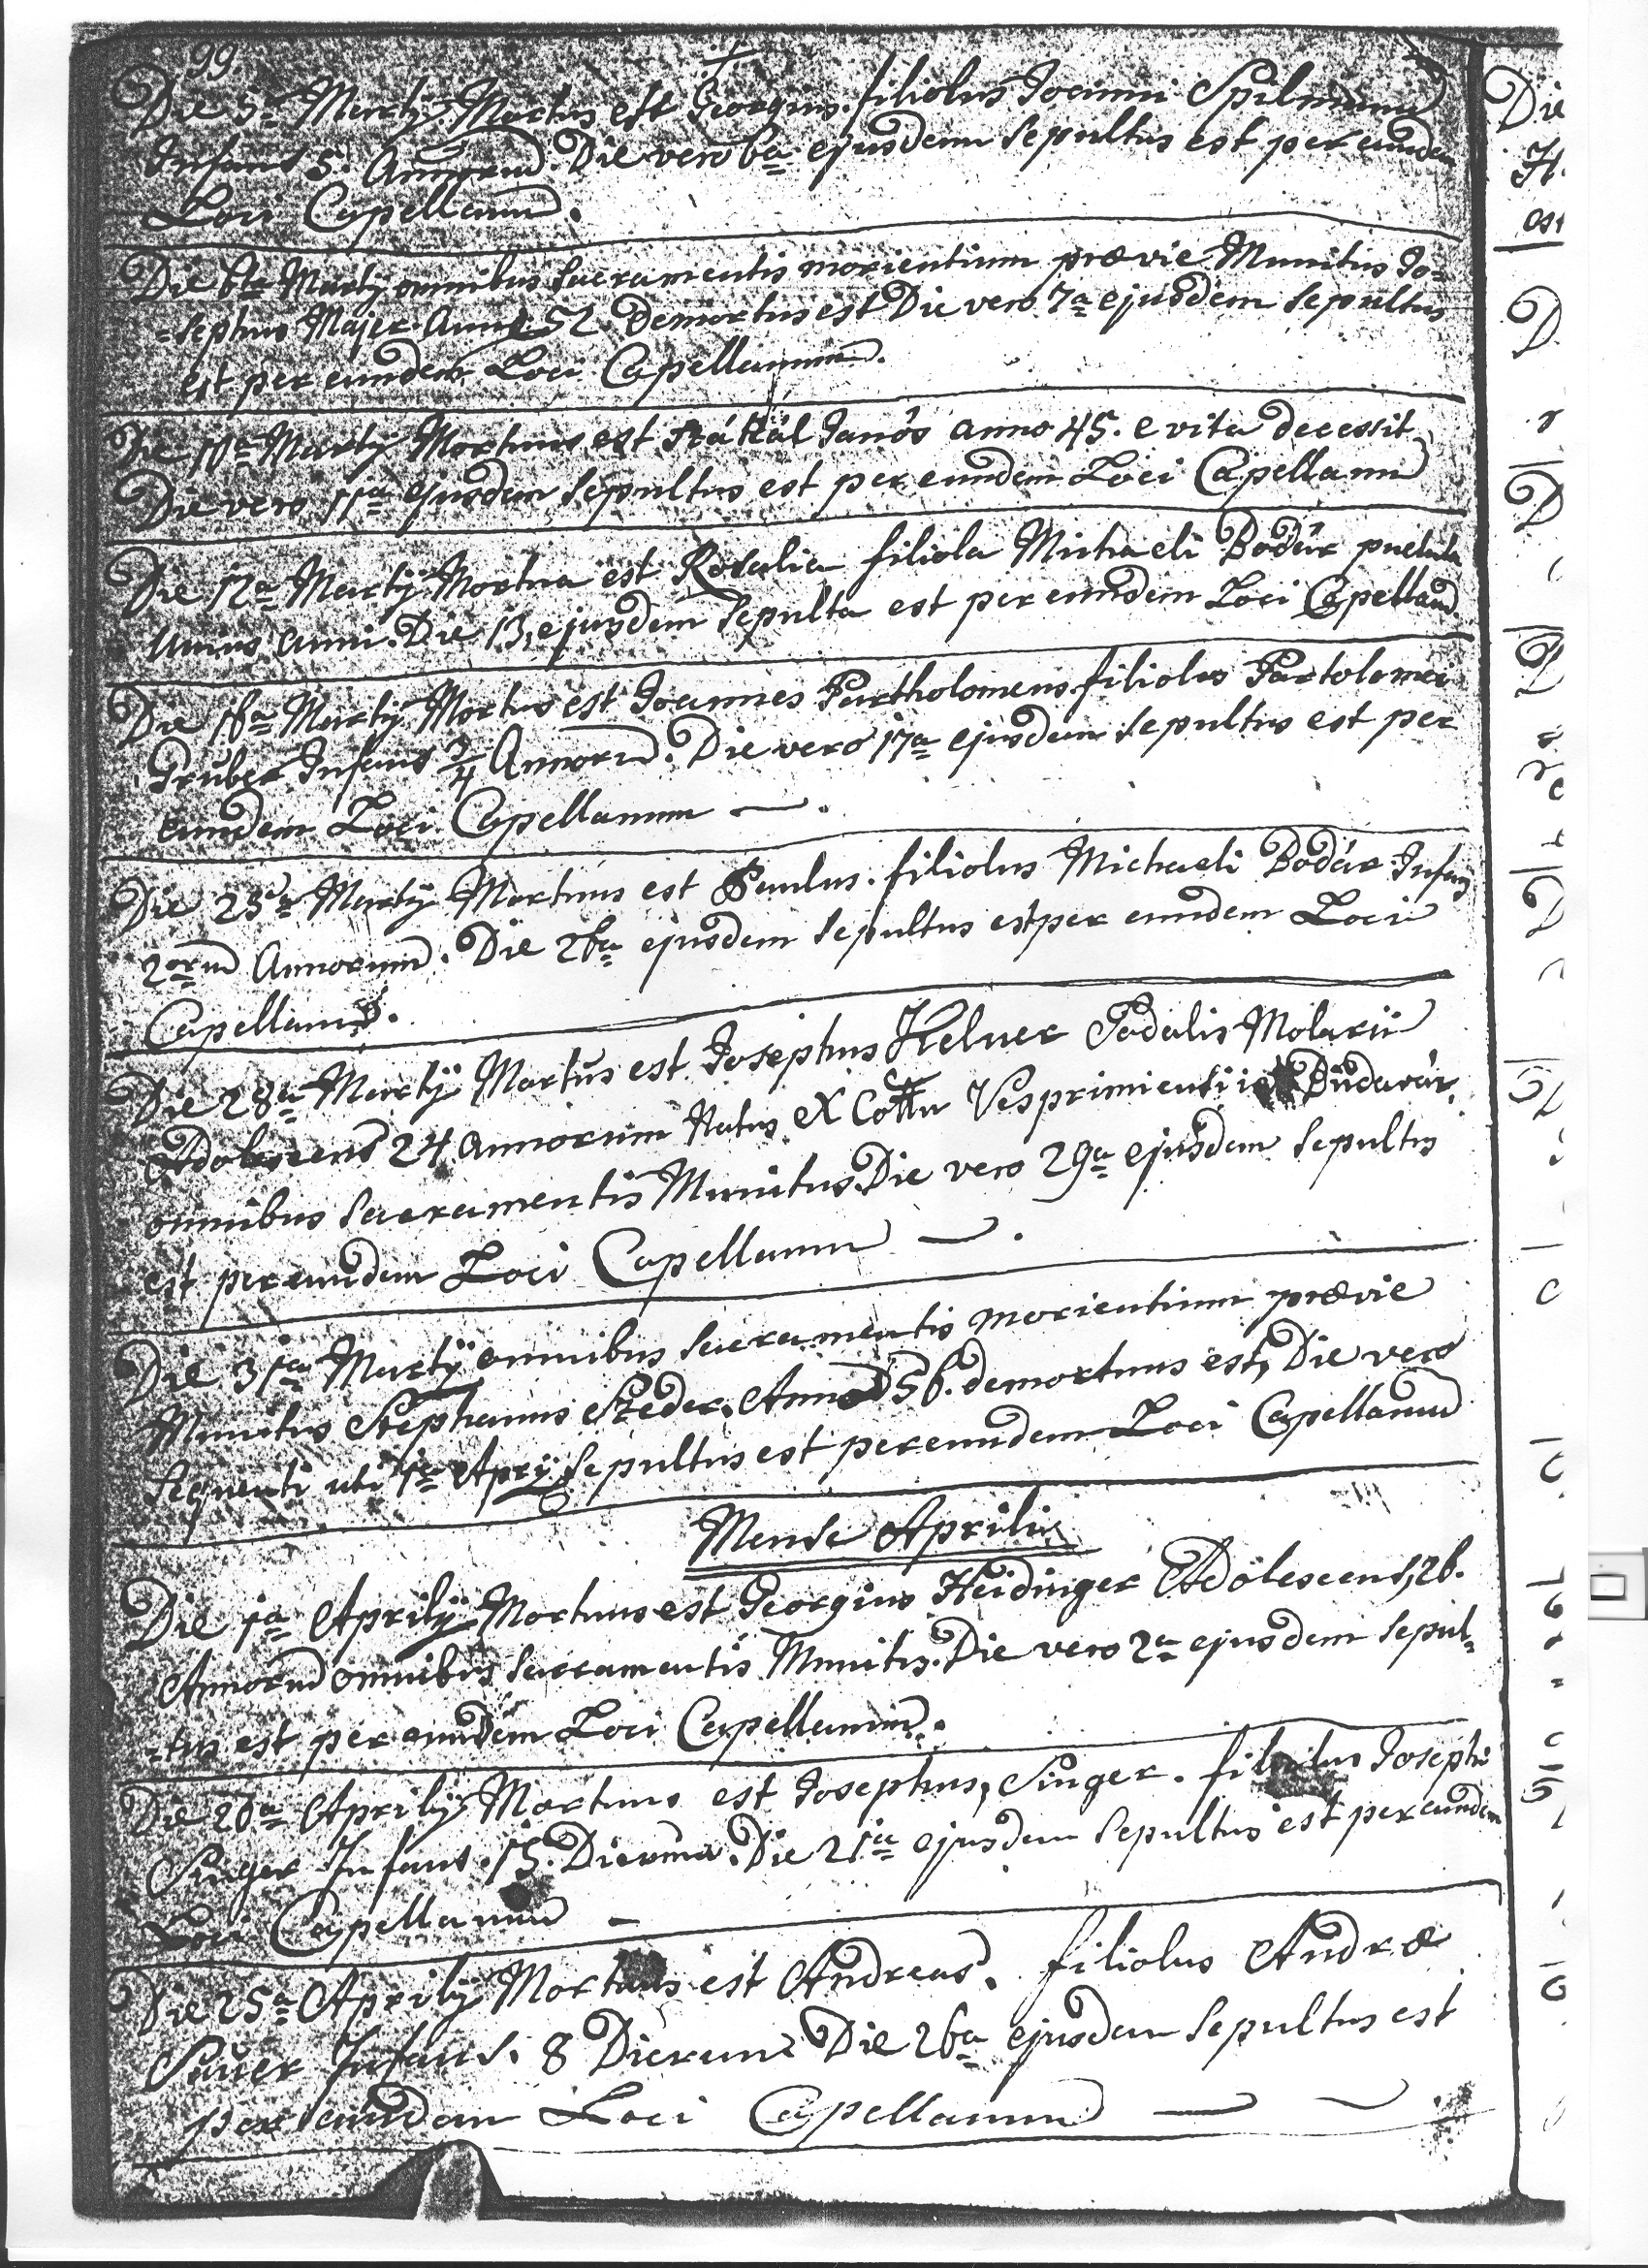 99.
Die 5a Martÿ Mortus est Georgius filiolus Joanni Spilmann
Infans 5. Annorum. Die vero 6a ejusdem Sepultus est per eundem
Loci Capellanum.
Die 6ta Martÿ omnibus Sacramentis morientium prævie Munitus Jo=
=sephus Majer Anno 52. Demortus est Die vero 7a ejusdem Sepultus
est per eundem Loci Capellanum.
Die 10a Martÿ Mortuus est János anno 45. e vita decessit
Die vero 11a ejusdem Sepultus est per eundem Loci Capellanum
Die 12a Martÿ Mortua est Rosalia filiola Michaeli Bodár puelula
unius anni. Die 13, ejusdem Sepulta est per eundem Loci Capellanum
Die 16a Martÿ Mortus est Joannes Partholomeus filiolus Partolomei
Gruber Infans 3/4 Annorum. Die vero 17a ejusdem Sepultus est per
eundem Loci Capellanum —.
Die 25a Martÿ Mortuus est Paulus. filiolus Michaeli Bodár Infans
2orum Annorum. Die 26a ejusdem Sepultus est per eundem Loci
Capellanum.
Die 28a Martÿ Mortus est Josephus Kelner Sodalis Molarii
Adolescens 24 annorum Natus ex Cottu Vesprimiensi Budavár,
omnibus Sacramentis Munitus Die vero 29a ejusdem Sepultus
est per eundem Loci Capellanum —.
Die 31a Martÿ omnibus Sacramentis morientium prævie
Munitus Stephanus Szeder, Anno 56. demortuus est, Die vero
Sequenti uti 1a Aprÿ Sepultus est per eundem Loci Capellanum
Mense Aprilis
Die 1a Aprilÿ Mortuus est Georgius Heidinger Adolescens, 26.
Annorum omnibus Sacramentis Munitus. Die vero 2a ejusdem Sepul=
=tus est per eundem Loci Capellanum.
Die 20a Aprilÿ Mortuus est Josephus, Singer. filiolus Josephi
Singer Infans. 15. Dierum. Die 21a ejusdem Sepultus est per eundem
Loci Capellanum —
Die 25a Aprilÿ Mortuus est Andreas. filiolus Andræ
Sauer Infans. 8 Dierum Die 26a ejusdem Sepultus est
per eundem Loci Capellanum —